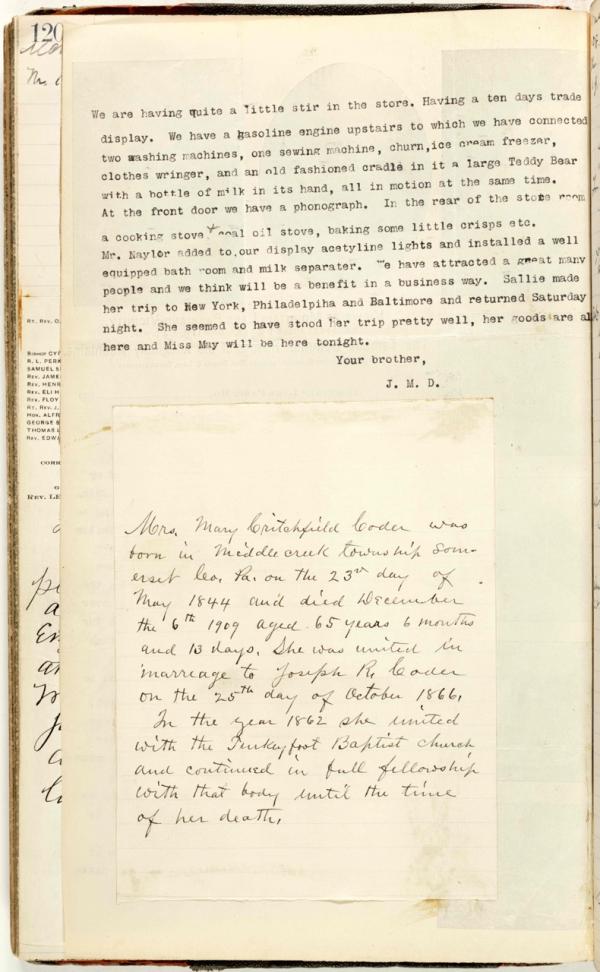 120
We are having quite a little stir in the store. Having a ten days trade
display. We have a gasoline engine upstairs to which we have connected
two washing machines, one sewing machine, churn,ice cream freezer,
clothes wringer, and an old fashioned cradle in it a large Teddy Bear
with a bottle of milk in its hand, all in motion at the same time.
At the front door we have a phonograph. In the rear of the store room
a cooking stove + coal oil stove, baking some little crisps etc.
Mr. Naylor added to,our display acetyline lights and installed a well
equipped bath room and milk separater. We have attracted a great many
people and we think will be a benefit in a business way. Sallie made
her trip to New York, Philadelpiha and Baltimore and returned Saturday
night. She seemed to have stood her trip pretty well, her goods are al
here and Miss May will be here tonight.
Your brother,
J. M. D.
RT. REV. O.
BISHOP CY
R. L. PERK
SAMUEL S
REV. JAME
REV. HENR
REV. ELI H
REV. FLOY
RT. REV. J.
HON. ALFR
GEORGE
THOMAS
REV. EDW
CORR
REV. LE
Mrs. Mary Critchfield Coder was
born in Middlecreek township Som-
erset Co. Pa. on the 23rd day of
May 1844 and died December
the 6th 1909 aged 65 years 6 months
and 13 days. She was united in
marriage to Joseph R. Coder
on the 25th day of October 1866.
In the year 1862 she united
with the Turkeyfoot Baptist church
and continued in full fellowship
with that body until the time
of her death.